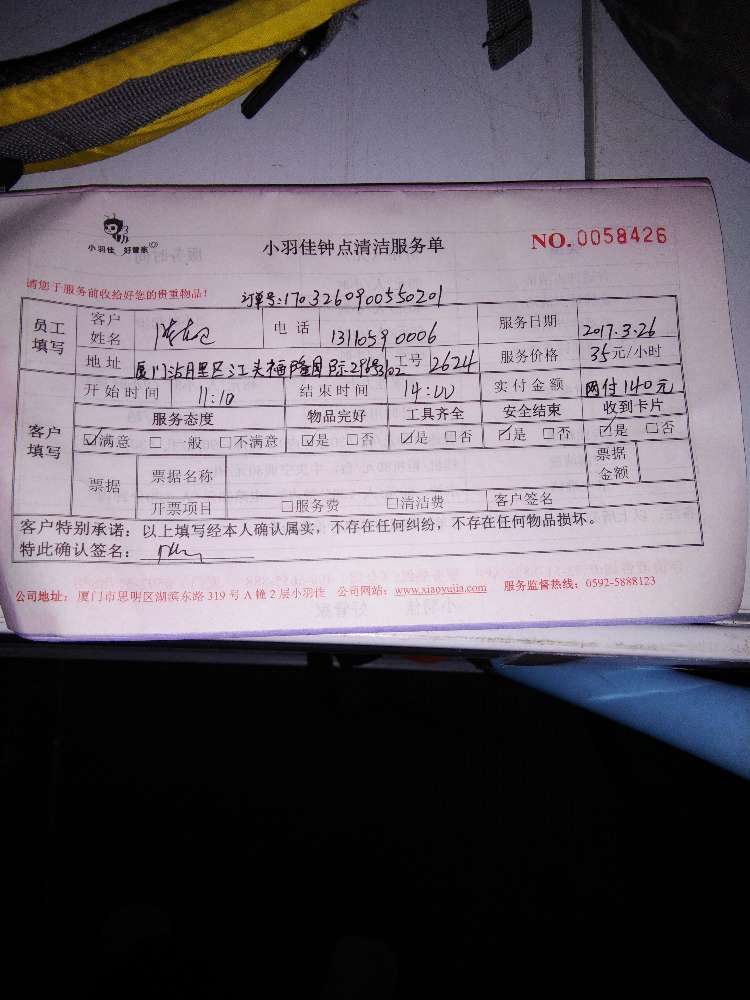 小羽佳 好管家
小羽佳钟点清洁服务单
NO.0058426
请您于服务前收给好您的贵重物品！
订单号:1703260900550201
员工填写 客户姓名 电话 13110590006 服务日期 2017.3.26
地址 厦门 里区江头福隆国际 工号 2624 服务价格 35元/小时
客户填写 开始时间 11:10 结束时间 14:00 实付金额 网付140元
服务态度 物品完好 工具齐全 安全结束 收到卡片
☑满意 □一般 □不满意 ☑是 □否 ☑是 □否 ☑是 □否 ☑是 □否
票据 票据名称 票据金额
开票项目 □服务费 □清洁费 客户签名
客户特别承诺：以上填写经本人确认属实，不存在任何纠纷，不存在任何物品损坏。
特此确认签名：
公司地址：厦门市思明区湖滨东路 319 号 A 幢 2 层小羽佳 公司网站：www.xiaoyujia.com 服务监督热线：0592-5888123